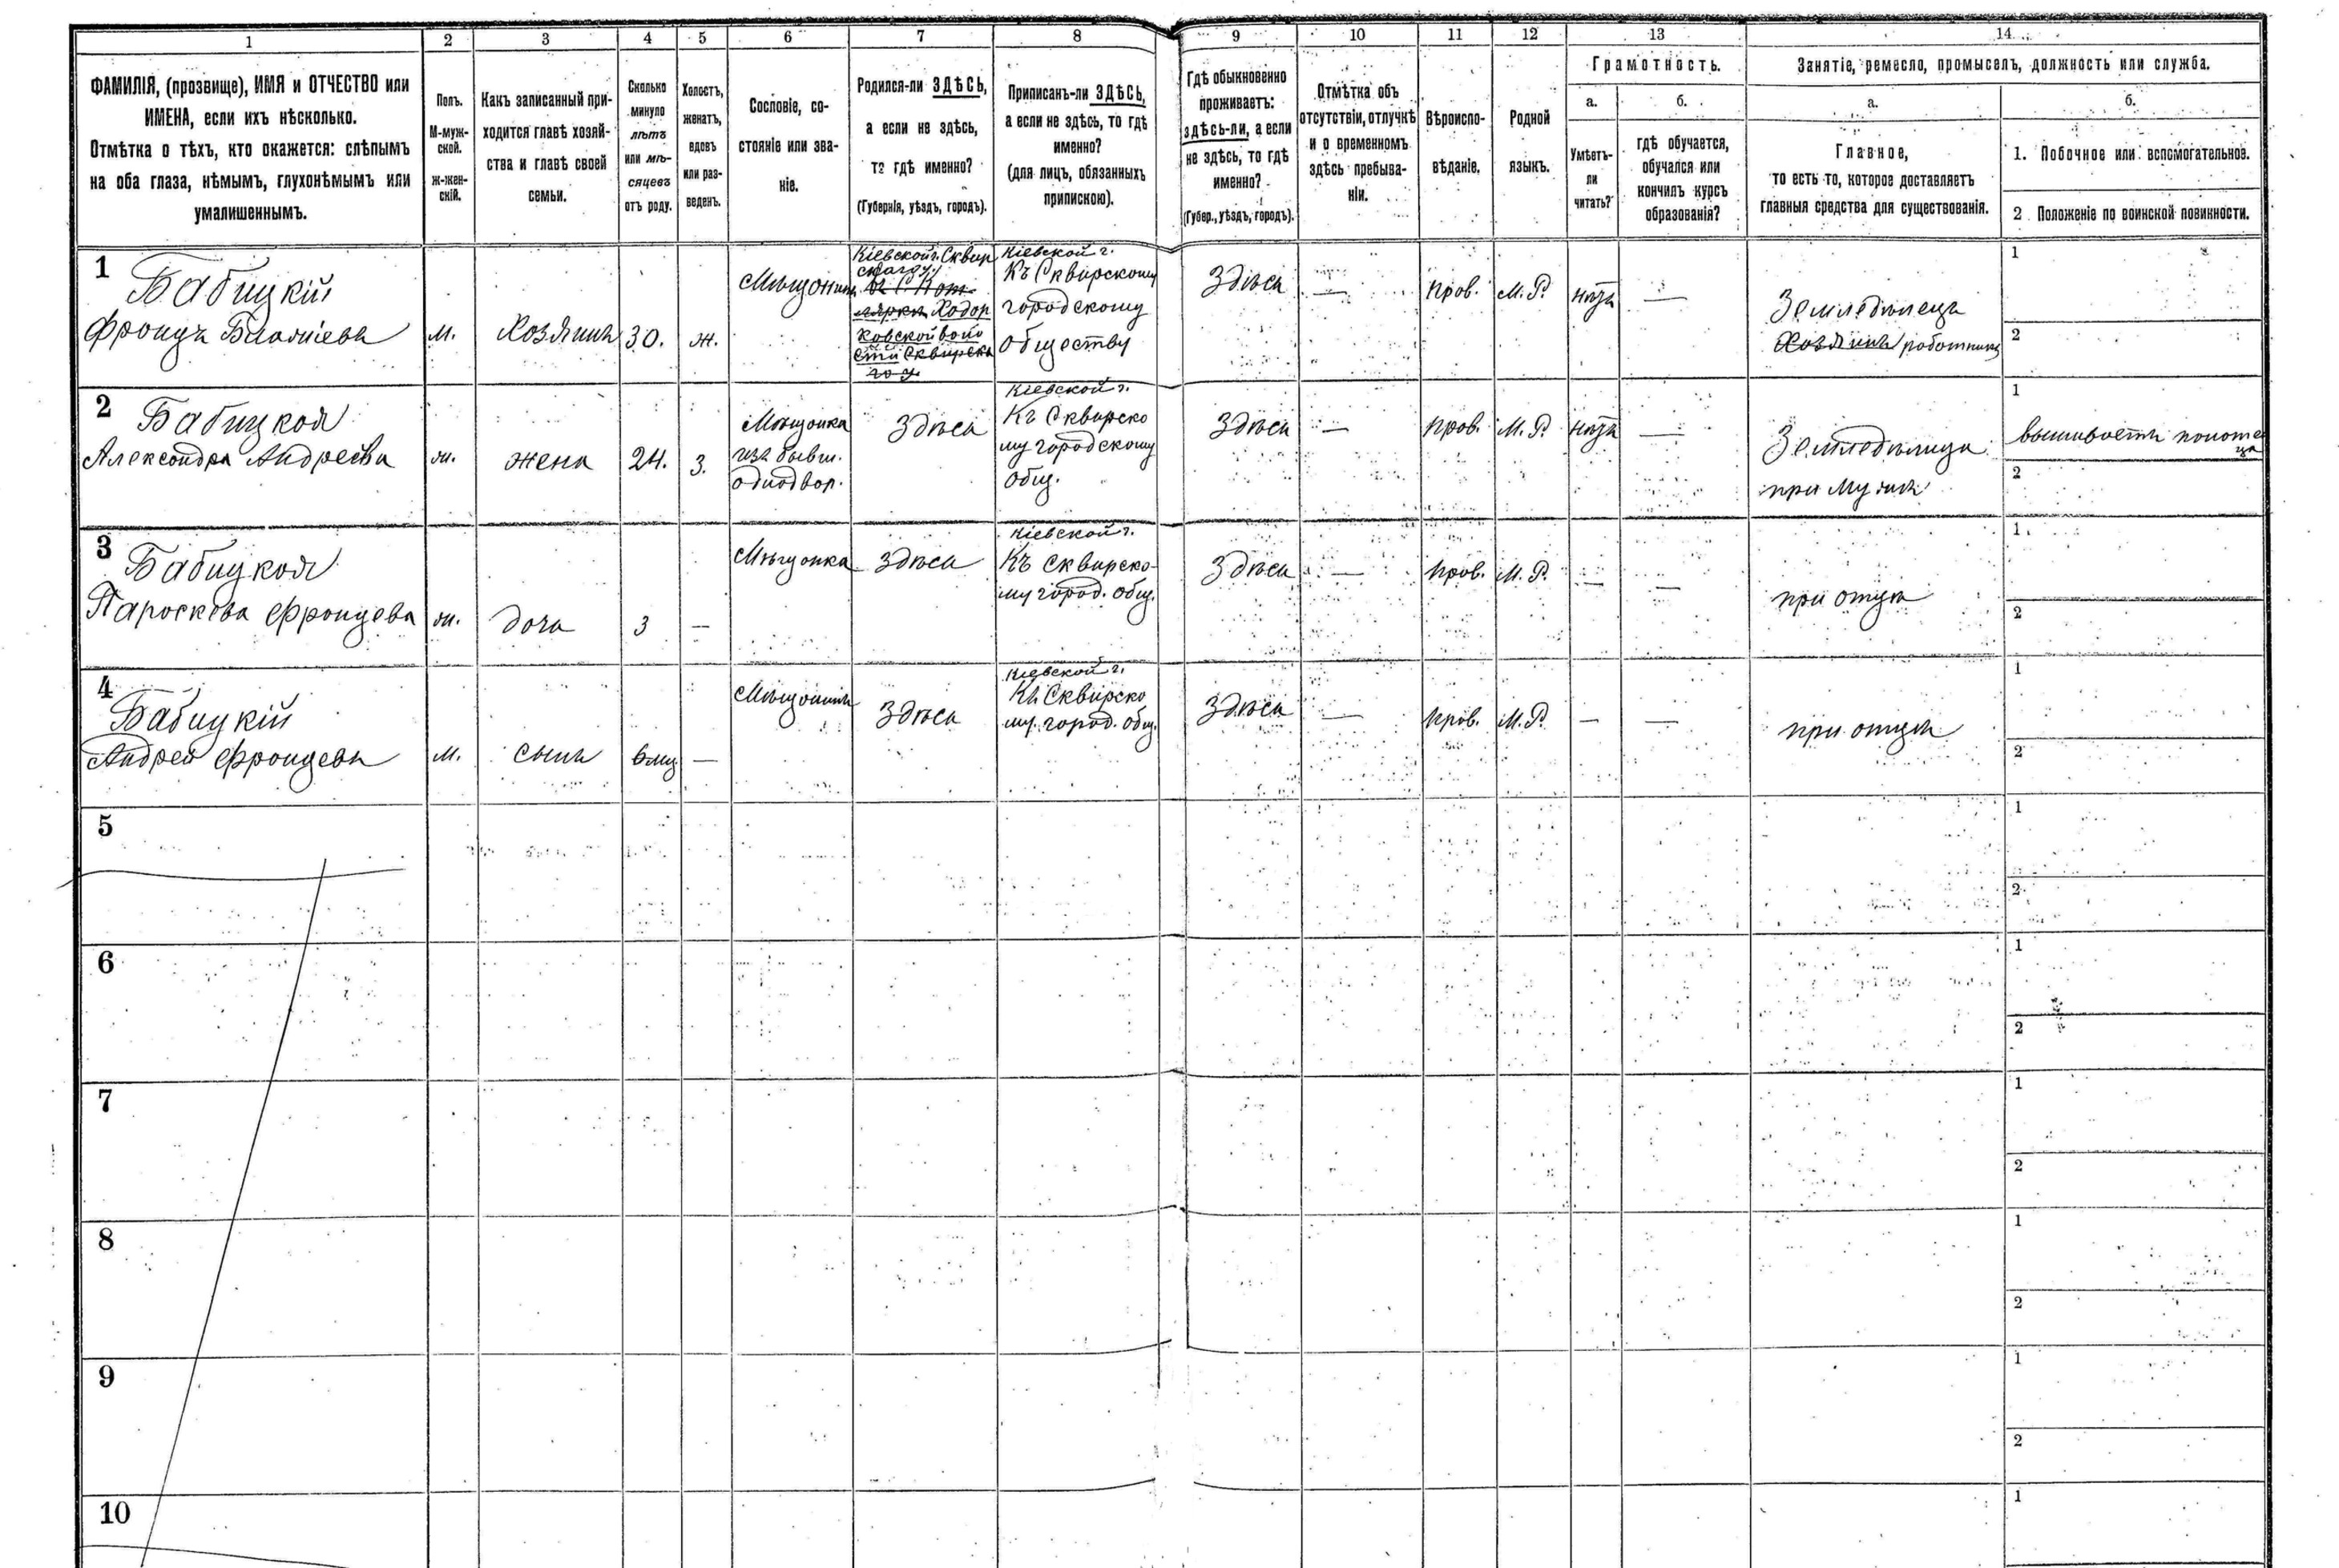 1 2 3 4 5 6 7 8 9 10 11 12 13 14
ФАМИЛІЯ, (прозвище), ИМЯ и ОТЧЕСТВО или
ИМЕНА, если ихъ нѣсколько.
Отмѣтка о тѣхъ, кто окажется: слѣпымъ
на оба глаза, нѣмымъ, глухонѣмымъ или
умалишеннымъ.
Полъ.
М-муж-
ской.
Ж-жен-
скій.
Какъ записанный при-
ходится главѣ хозяй-
ства и главѣ своей
семьи.
Сколько
минуло
лѣтъ
или мѣ-
сяцевъ
отъ роду.
Холостъ,
женатъ,
вдовъ
или раз-
веденъ.
Сословіе, со-
стояніе или зва-
ніе.
Родился-ли ЗДѢСЬ,
а если не здѣсь,
то гдѣ именно?
(Губернія, уѣздъ, городъ).
Приписанъ-ли ЗДѢСЬ,
а если не здѣсь, то гдѣ
именно?
(для лицъ, обязанныхъ
припискою).
Гдѣ обыкновенно
проживаетъ:
здѣсь-ли, а если
не здѣсь, то гдѣ
именно?
(Губер., уѣздъ, городъ).
Отмѣтка объ
отсутствіи, отлучкѣ
и о временномъ
здѣсь пребыва-
ніи.
Вѣроиспо-
вѣданіе.
Родной
языкъ.
Грамотность.
а.
Умѣетъ-
ли
читать?
б.
гдѣ обучается,
обучался или
кончилъ курсъ
образованія?
Занятіе, ремесло, промыселъ, должность или служба.
а.
Главное,
то есть то, которое доставляетъ
главныя средства для существованія.
б.
1. Побочное или вспомогательное.
2 Положеніе по воинской повинности.
1
Бабицкій
Францъ
м.
Хозяинъ
30.
ж.
Мѣщанинъ
Кіевской г. Сквир
скаго у.
Ходор
ковской воло
сти Сквирска
го у.
Кіевской г.
Къ Сквирскому
городскому
обществу
Здѣсь
—
прав.
М. Р.
нѣтъ
—
Земледѣлецъ
Хозяинъ работникъ
1
2
2
Бабицкая
Александра Андреева
ж.
жена
24.
З.
Мѣщанка
изъ бывш.
однодвор.
Здѣсь
Кіевской г.
Къ Сквирско
му городскому
общ.
Здѣсь
—
прав.
М. Р.
нѣтъ
—
Земледѣлица
при мужѣ
1
вышиваетъ полоте
нца
2
3
Бабицкая
Параскева Францева
ж.
дочь
3
—
Мѣщанка
Здѣсь
Кіевской г.
Къ Сквирско-
му город. общ.
Здѣсь
—
прав.
М. Р.
—
—
при отцѣ
1
2
4
Бабицкій
Андрей Францевъ
м.
сынъ
6 мц
—
Мѣщанинъ
Здѣсь
Кіевской г.
Къ Сквирско
му город. общ.
Здѣсь
—
прав.
М. Р.
—
—
при отцѣ
1
2
5
1
2
6
1
2
7
1
2
8
1
2
9
1
2
10
1